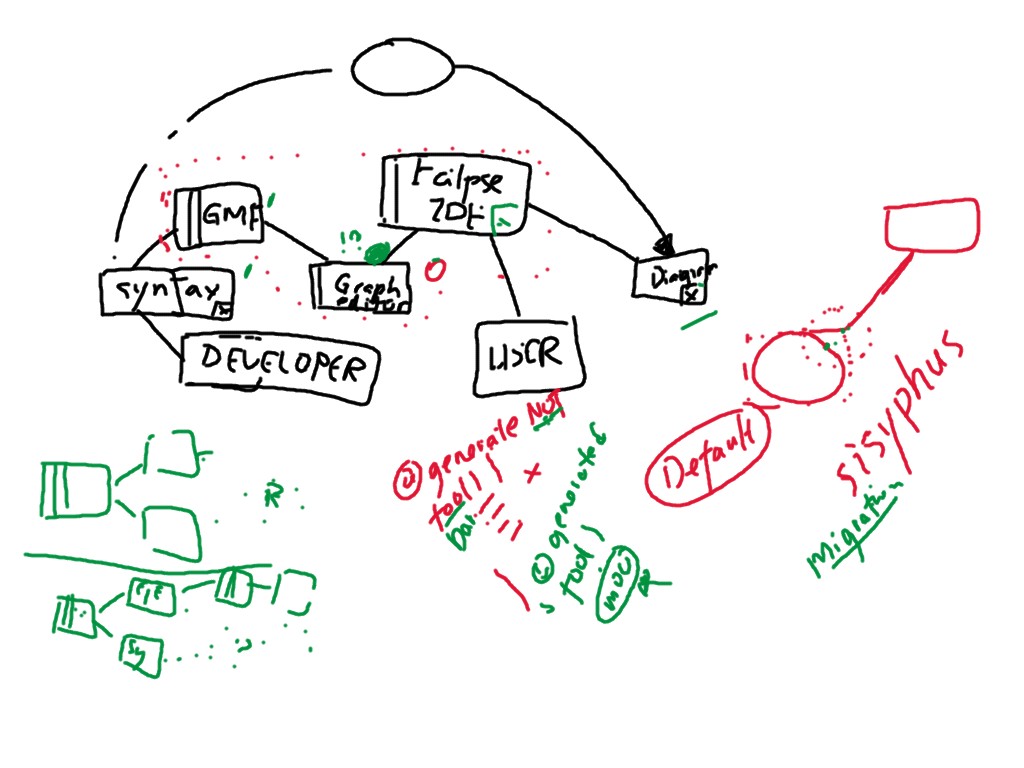 GMF
Eclipse
IDE
x
in
Graph
editor
Diagram
x
syntax
x
DEVELOPER
USER
generate NOT
tool
bar
x
generated
tool
Default
sisyphus
migration
Sy